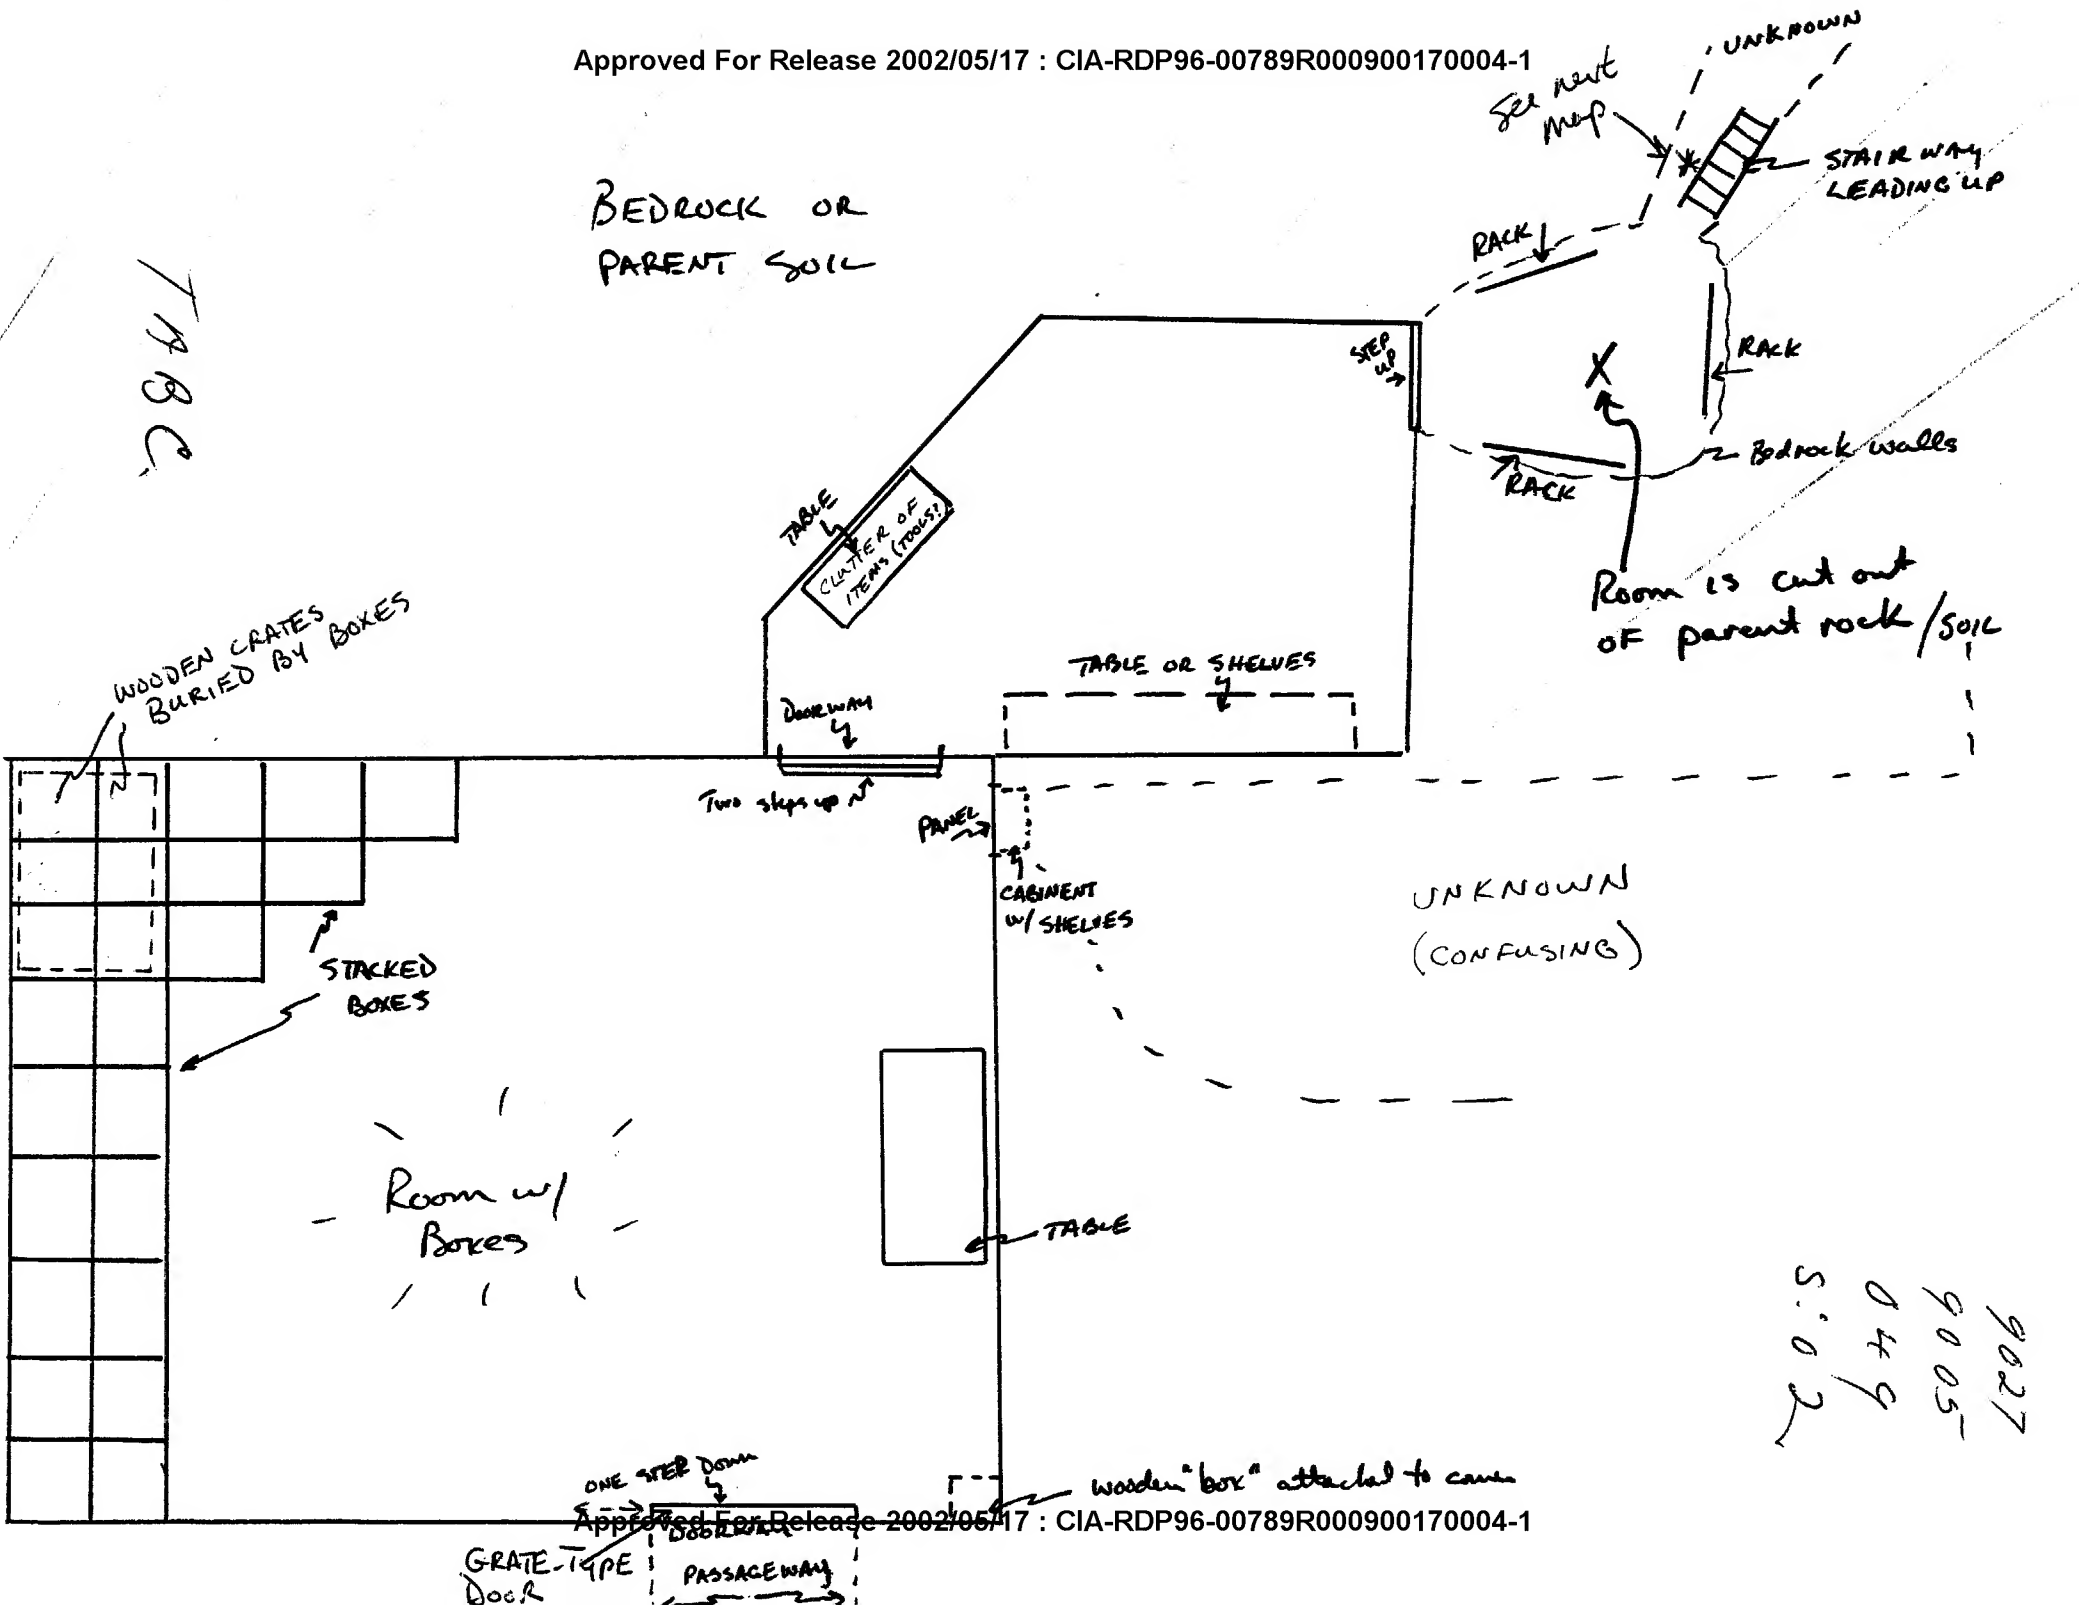 Approved For Release 2002/05/17 : CIA-RDP96-00789R000900170004-1
UNKNOWN
See next
map
STAIRWAY
LEADING UP
BEDROCK OR
PARENT SOIL
RACK
TAB C
STEP
UP
X
RACK
Bedrock walls
RACK
TABLE
CLUTTER OF
ITEMS (TOOLS?)
Room is cut out
OF parent rock/SOIL
WOODEN CRATES
BURIED BY BOXES
TABLE OR SHELVES
DOORWAY
Two steps up
PANEL
CABINENT
W/ SHELVES
UNKNOWN
(CONFUSING)
STACKED
BOXES
Room w/
Boxes
TABLE
9027
9005
049
S:02
ONE STEP DOWN
wooden "box" attached to corner
Approved For Release 2002/05/17 : CIA-RDP96-00789R000900170004-1
DOORWAY
GRATE-TYPE
DOOR
PASSAGEWAY